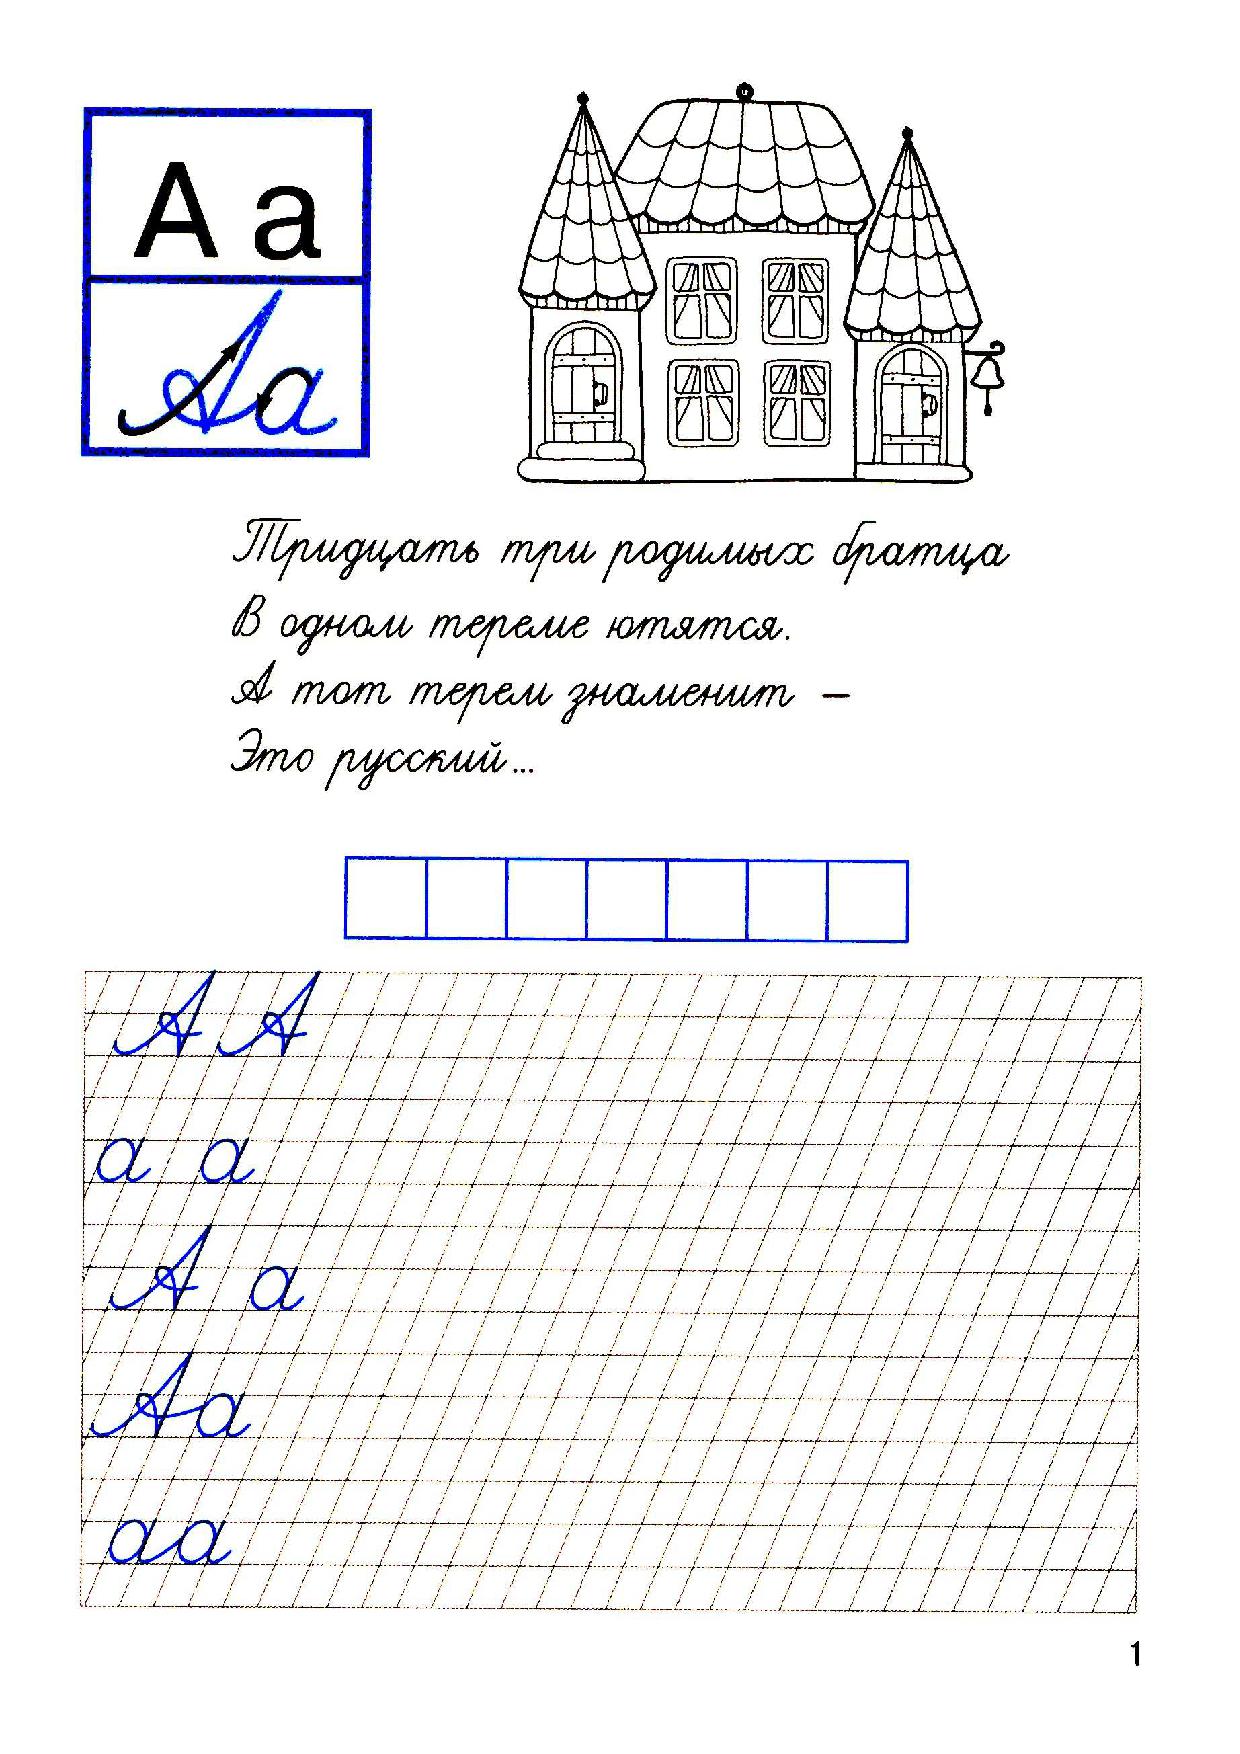 А а
Аа
Тридцать три родимых братца
В одном тереме ютятся.
А тот терем знаменит –
Это русский...
А А
а а
А а
Аа
аа
1